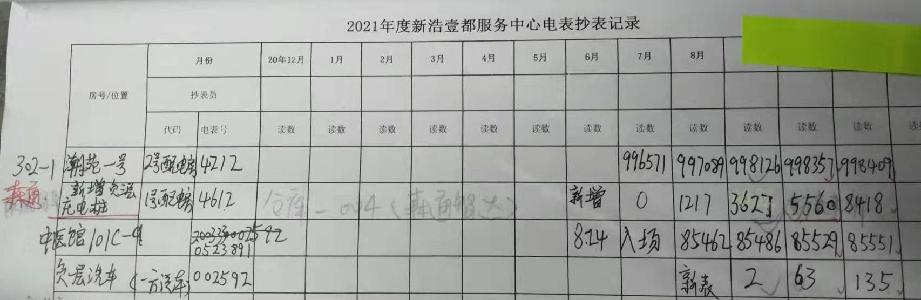 2021年度新浩壹都服务中心电表抄表记录
月份 20年12月 1月 2月 3月 4月 5月 6月 7月 8月
房号/位置 抄表员
代码 电表号 读数 读数 读数 读数 读数 读数 读数 读数 读数 读数 读数 读数
302-1 潮苑一号 2号配电房 4712 996571 997089 998126 998357 998409
森通 新增负一层充电桩 1号配电房 4612 新增 0 1217 3627 5560 8418
中医馆101C-4 0523891 8.24 入场 85462 85486 85529 85551
负一层汽车 (一方汽车) 002592 新表 2 63 135